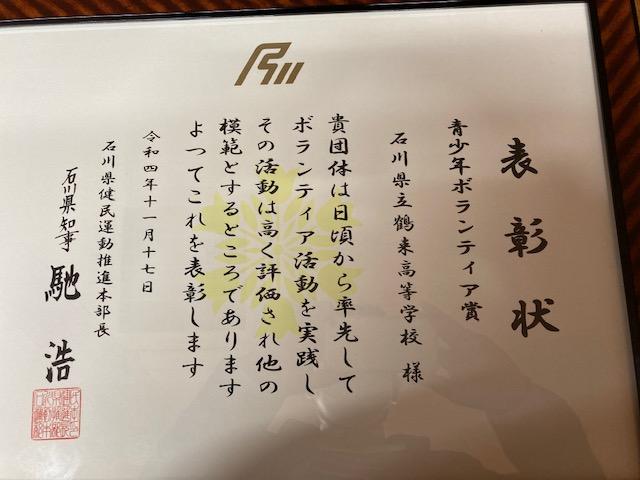 表彰状
青少年ボランティア賞
石川県立鶴来高等学校 様
貴団体は日頃から率先して
ボランティア活動を実践し
その活動は高く評価され他の
模範とするところであります
よってこれを表彰します
令和四年十一月十七日
石川県健民運動推進本部長
石川県知事 馳 浩